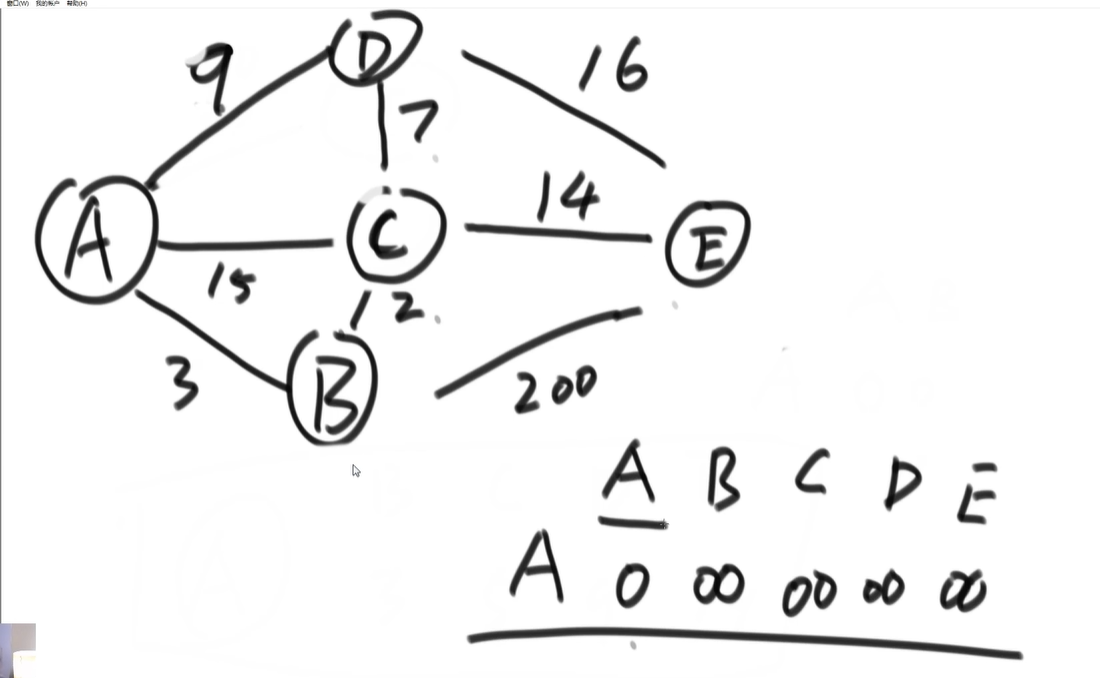 窗口(W) 我的帐户 帮助(H)
D
9
16
7
14
A
C
E
15
12
3
B
200
A B C D E
A 0 ∞ ∞ ∞ ∞